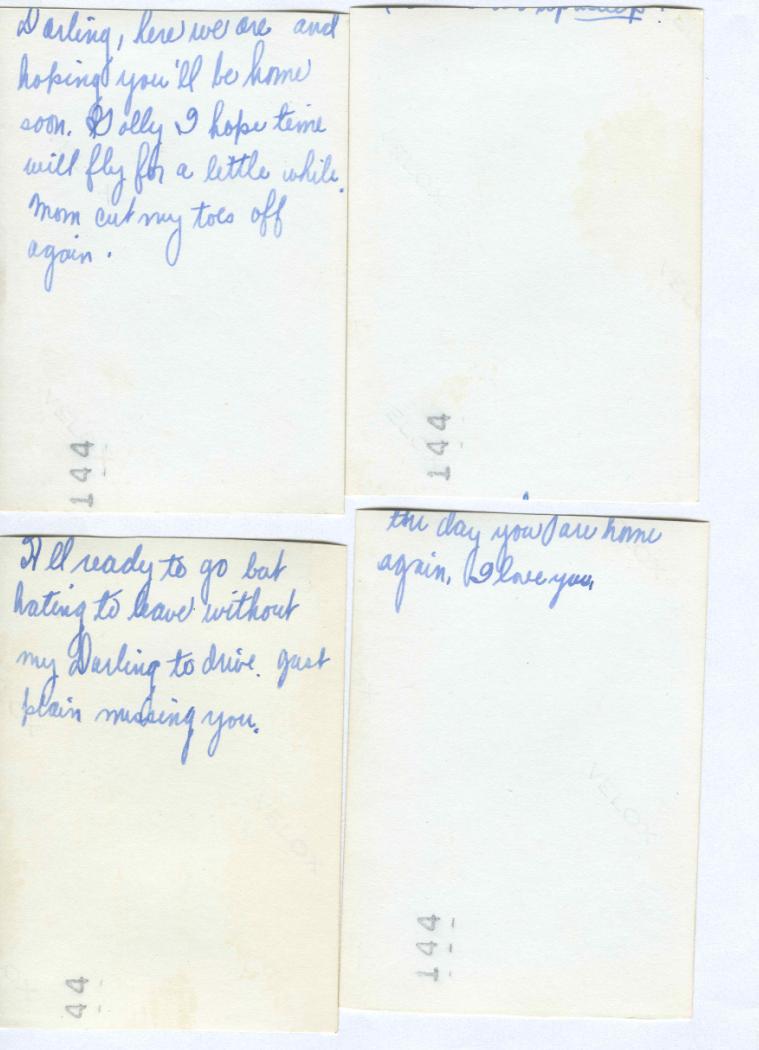 Darling, here we are and
hoping you'll be home
soon. Golly I hope time
will fly for a little while.
Mom cut my toes off
again.
144
144
All ready to go but
hating to leave without
my Darling to drive. Just
plain missing you.
44
the day you are home
again. I love you.
VELOX
144